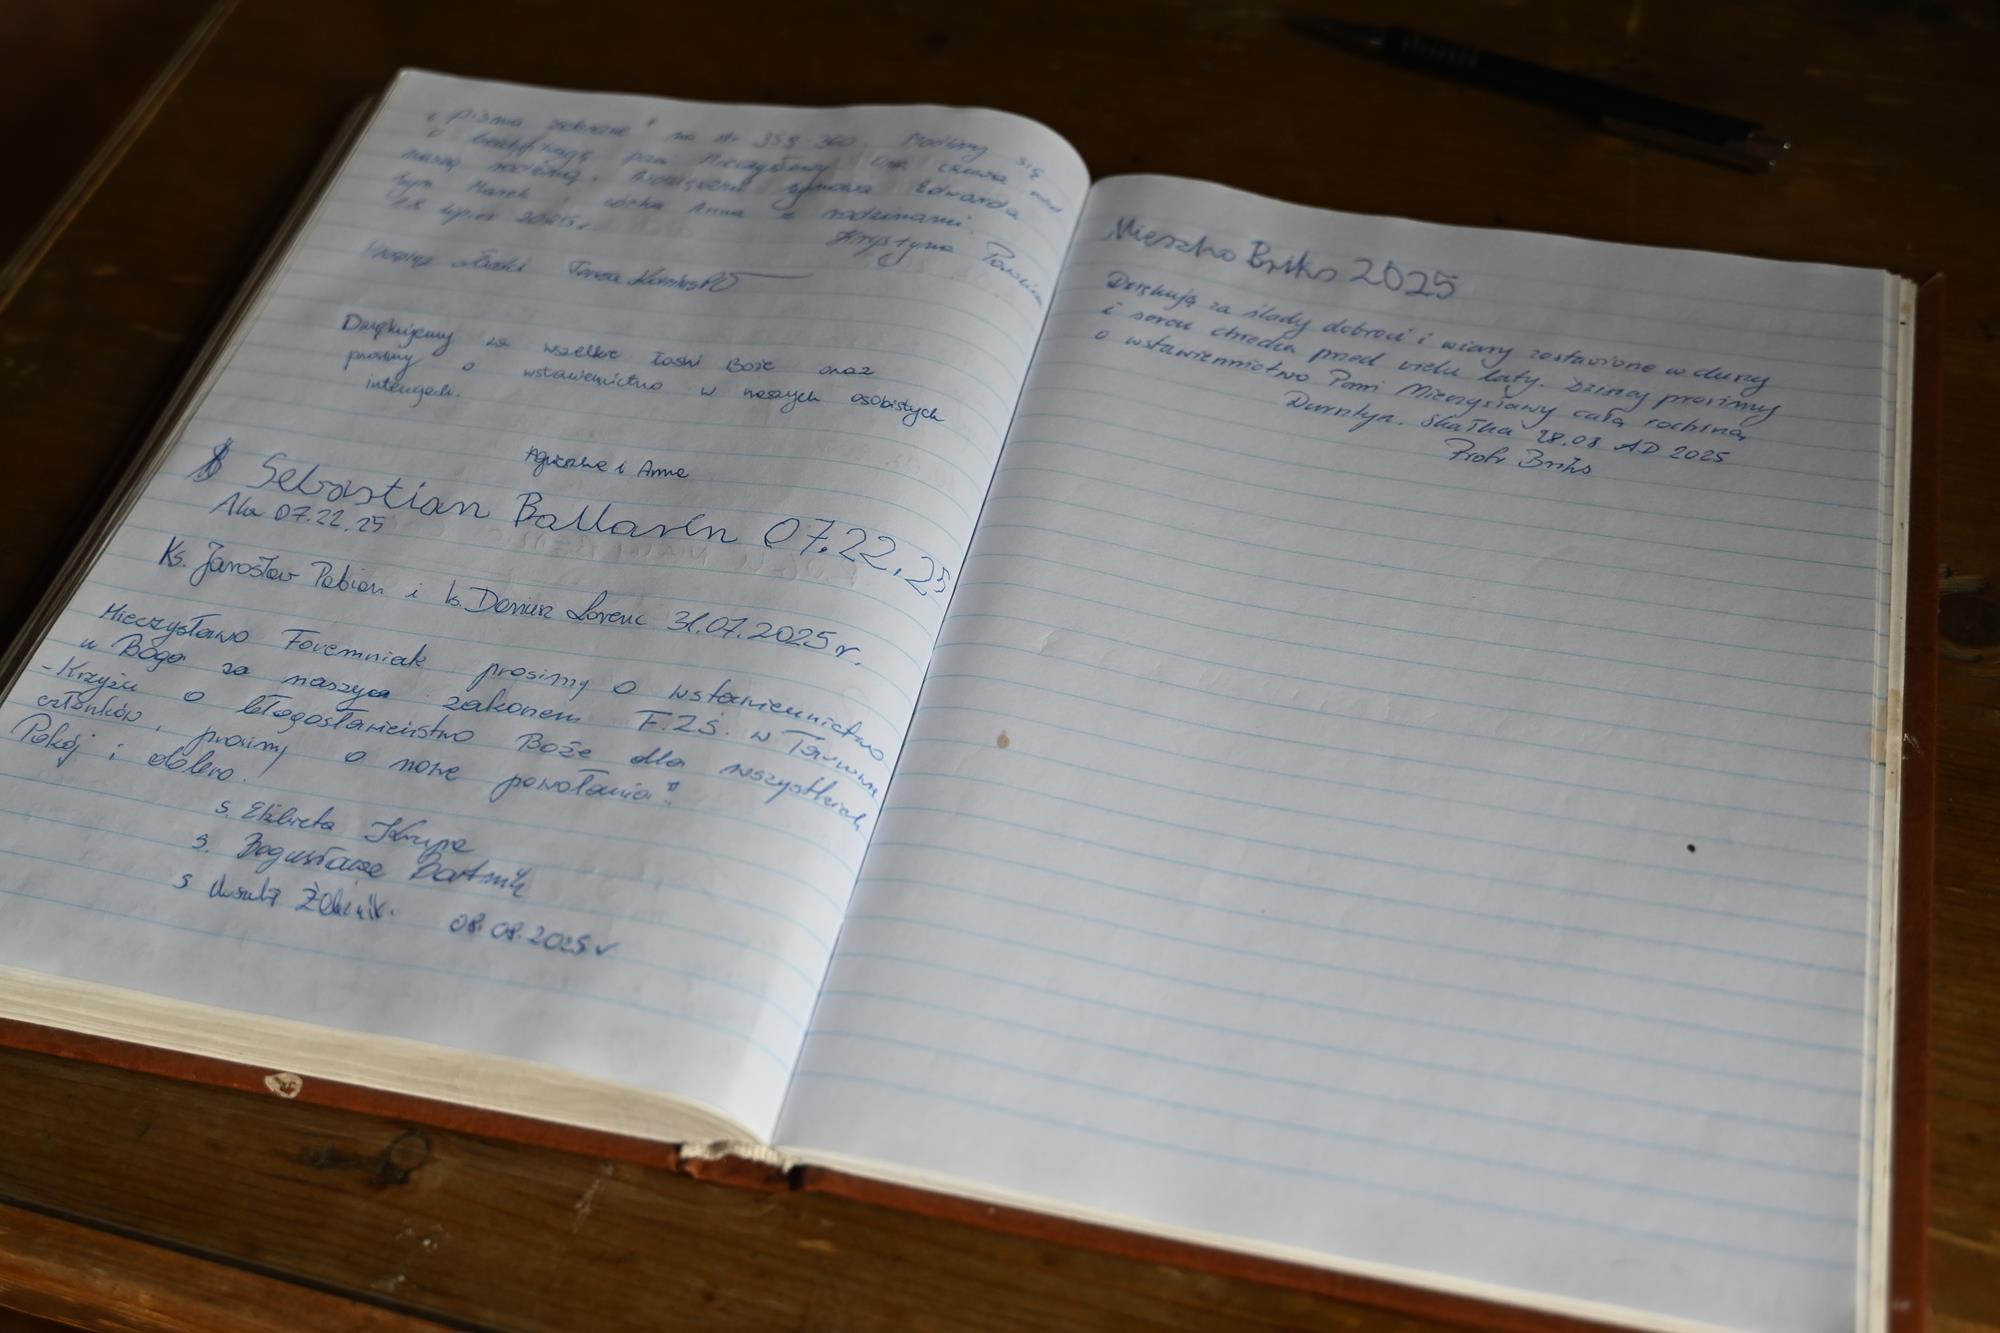 "Pisma zebrane" na str 359 360. Modlimy się
o beatyfikację pani Mieczysławy. Ona czuwa nad
naszą rodziną.
syn Marek i córka Anna z rodzinami.
lipiec 2025 r
Krystyna
Teresa
Dziękujemy za wszelkie łaski Boże oraz
prosimy o wstawiennictwo w naszych osobistych
intencjach.
Agnieszka i Anna
Sebastian Ballarin 07.22.25
Ala 07.22.25
Ks. Jarosław Pabian i ks. Dariusz Lorenc 31.07.2025 r.
Mieczysławo Faremniak prosimy o wstawiennictwo
u Boga za naszym zakonem F.Z.Ś. w Tarnowie
-Krzyżu o błogosławieństwo Boże dla wszystkich
członków, prosimy o nowe powołania!
Pokój i dobro!
s. Elżbieta Krupa
s. Bogusława Bartnik
s Urszula 08.08.2025 r
Mieszko Briks 2025
Dziękuję za ślady dobroci i wiary zostawione w duszy
i sercu chrześn przed wielu laty. Dzisiaj prosimy
o wstawiennictwo Pani Mieczysławy całą rodziną
Dursztyn. Skałka 28.08 AD 2025
Piotr Briks